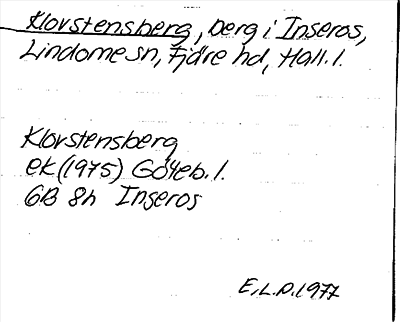 Klovstensberg, berg i Inseros,
Lindome sn, Fjäre hd, Hall. l.
Klovstensberg
ek (1975) Göteb. l.
6B 8h Inseros
E.L.P. 1977